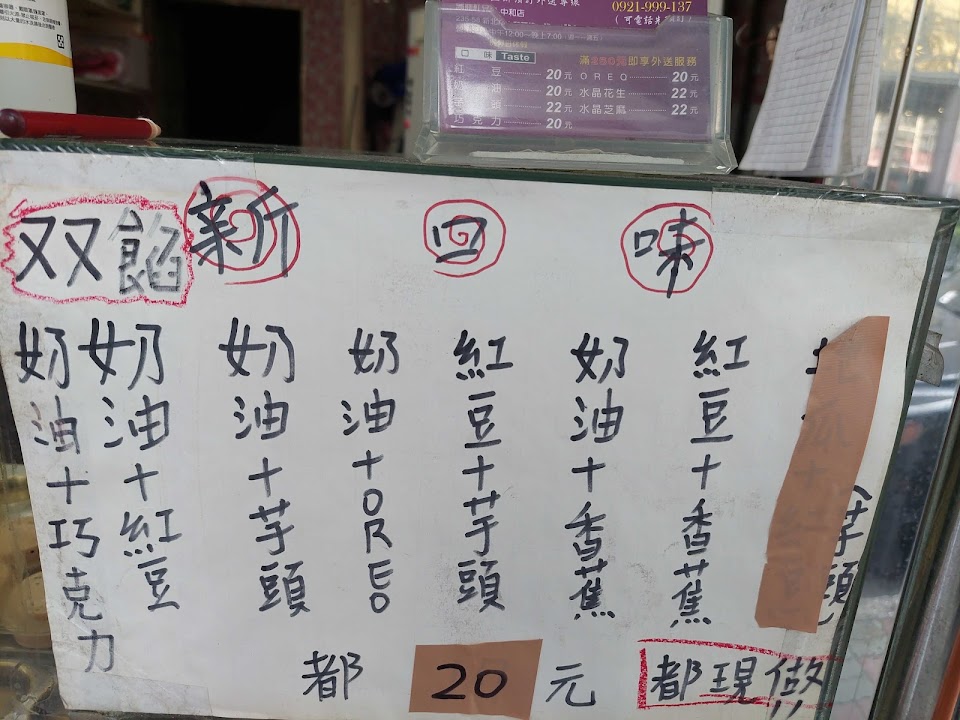 0921-999-137
中和店
口味 Taste
滿250元即享外送服務
紅豆 20元
OREO 20元
油 20元
水晶花生 22元
頭 22元
水晶芝麻 22元
巧克力 20元
双餡 新 口 味
奶油+巧克力
奶油+紅豆
奶油+芋頭
奶油+OREO
紅豆+芋頭
奶油+香蕉
紅豆+香蕉
芋頭
都 20 元
都現做!!